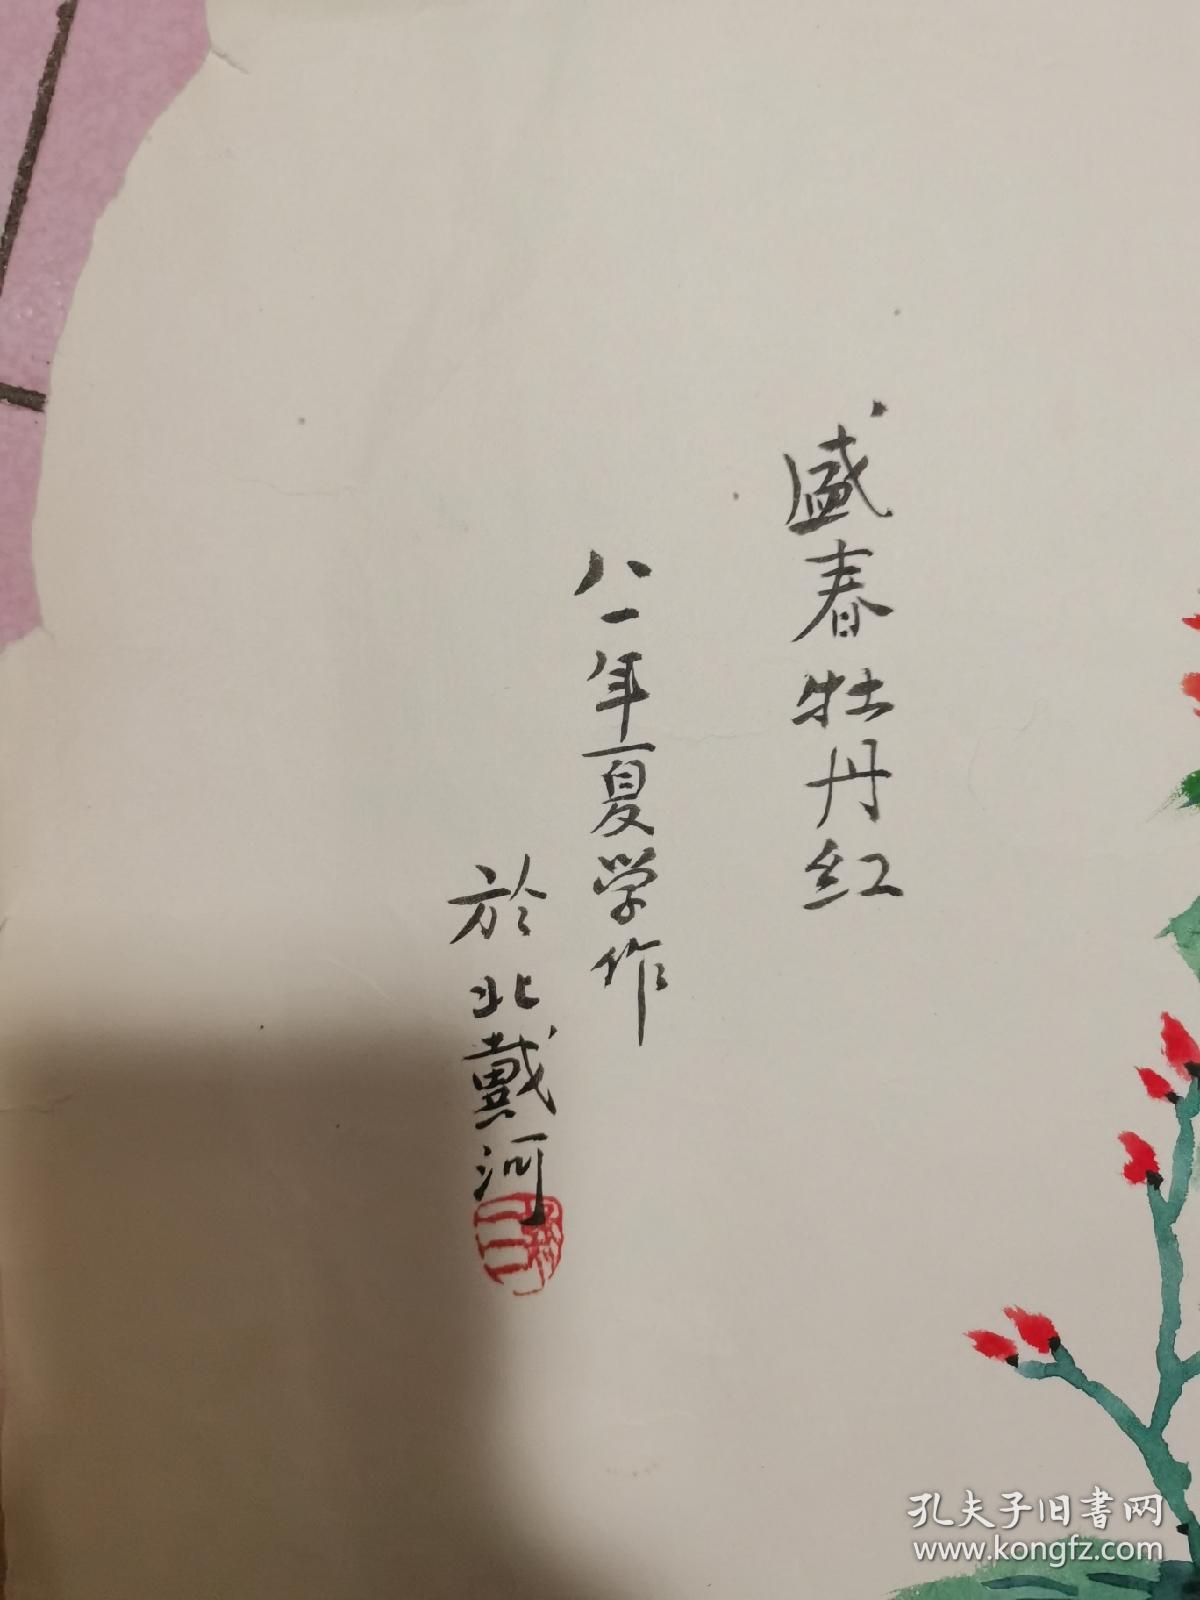 盛春牡丹红
八一年夏学作
於北戴河
孔夫子旧書网
www.kongfz.com